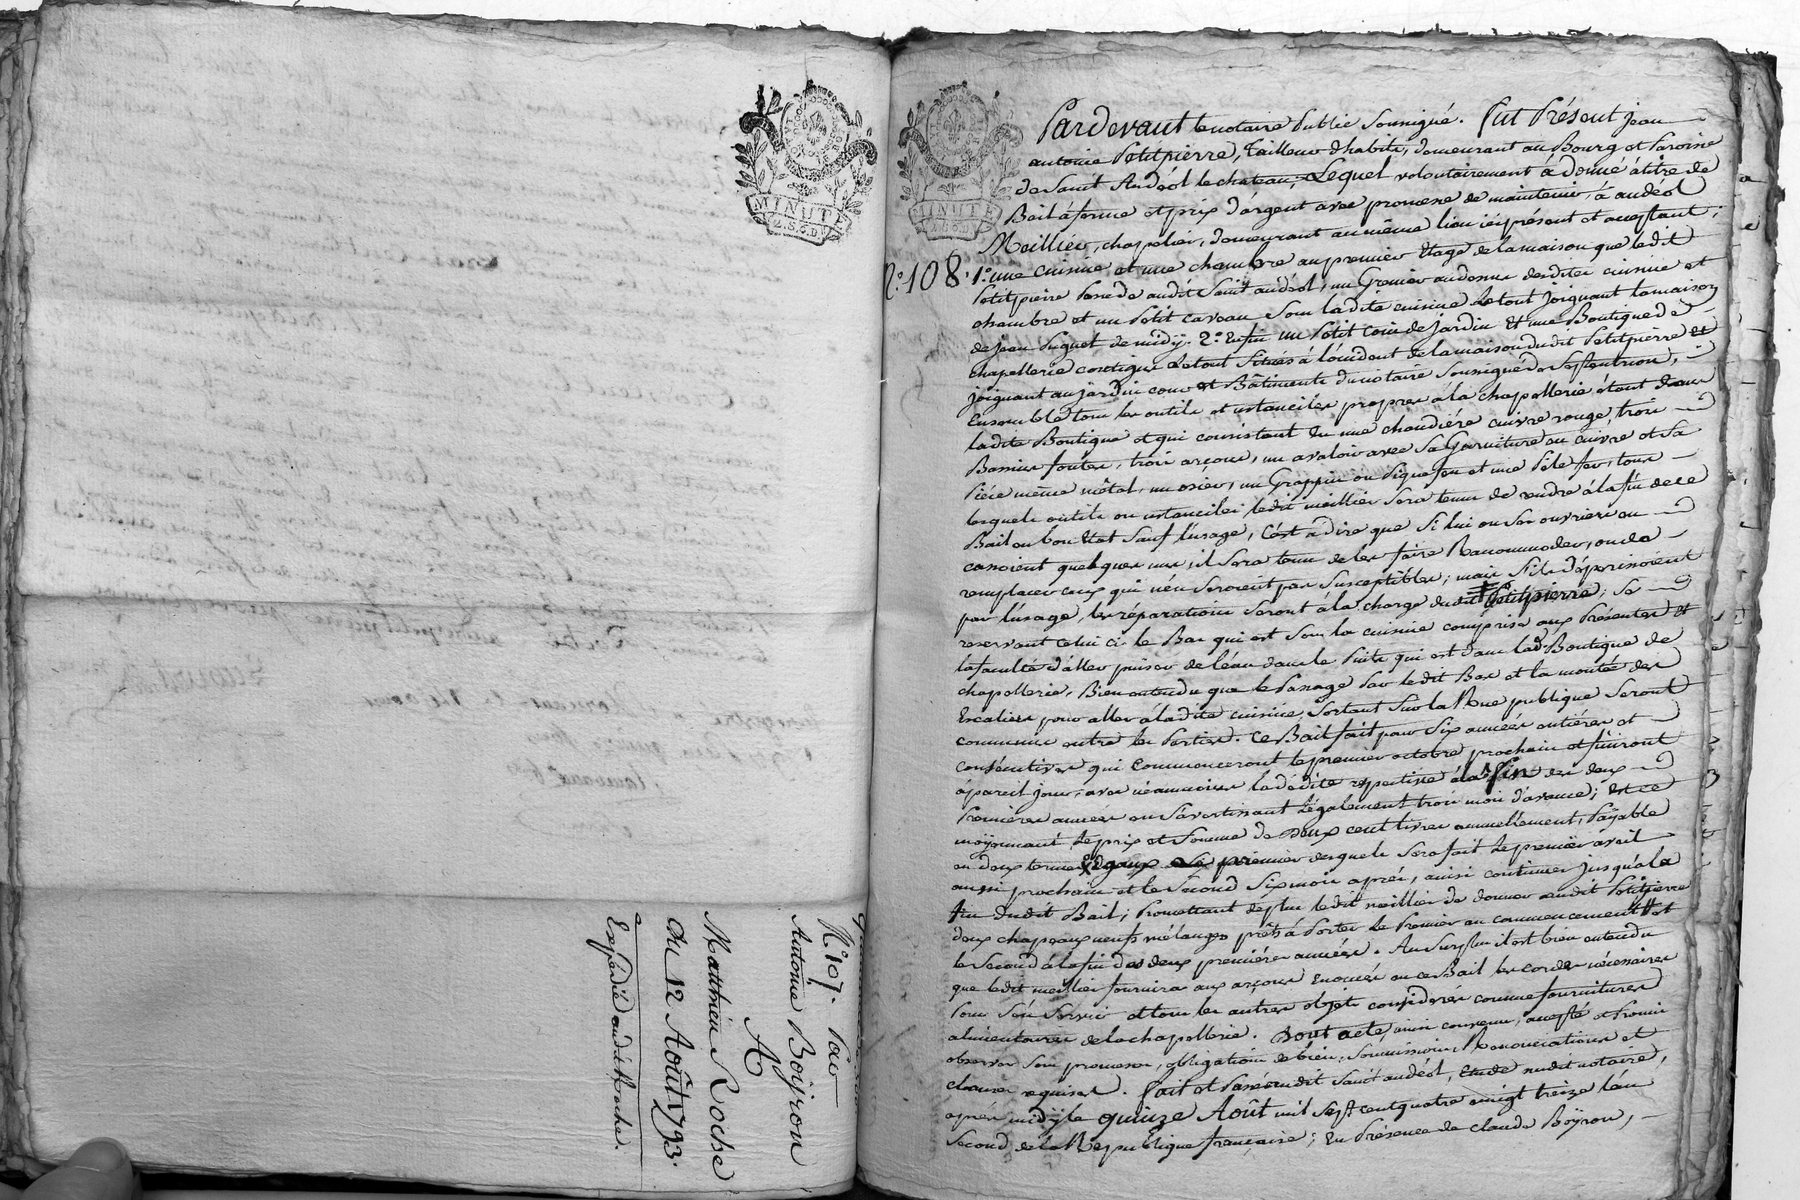 MINUTE
2.S.6.D.
N.° 107. Par
Antoine Boijron
A
Matthieu Roche
du 12 Août 1793.
Expédié audit Roche.
MINUTE
2.S.6.D.
N.° 108.
Pardevant le notaire Public soussigné. Fut Présent jean
antoine Petitpierre, Tailleur d'habits, demeurant au Bourg et Paroisse
de Saint Andéol le chateau; Lequel volontairement à donné à titre de
Bail à ferme et prix d'argent avec promesse de maintenir, à andéol
Meillier, chapelier, demeurant au même lieu ici présent et acceptant;
1.° une cuisine et une chambre au premier Etage de la maison que ledit
Petitpierre Possede audit Saint andéol, un Grenier au dessus desdites cuisine et
chambre et un Petit caveau Sous ladite cuisine Le tout joignant la maison
de jean Puguet de midy. 2.° Enfin un Petit coin de jardin et une Boutique de
chapellerie contigue Le tout Situés à l'occident de la maison dudit Petitpierre et
joignant au jardin cour et Bâtiments du notaire soussigné de Septentrion,
Ensemble tous les outils et ustanciles propres à la chapellerie étant dans
ladite Boutique et qui consistent En une chaudière cuivre rouge, trois
Bassins fontes, trois arçons, un avaloir avec Sa Garniture en cuivre et Sa
Pièce même métal, un osier, un Grappin ou Pique feu et une Pèle fer, tous
lesquels outils ou ustanciles ledit meillier Sera tenu de rendre à la fin de ce
Bail en bon Etat Sauf l'usage, C'est à dire que Si lui ou Ses ouvriers en
cassoient quelques uns, il Sera tenu de les faire Racommoder, ou de
remplacer ceux qui n'en Seroient pas Susceptibles; mais S'ils dépérissoient
par l'usage, les réparations Seront à la charge dudit Petitpierre; Se
reservant celui ci le Bas qui est Sous la cuisine comprise aux Présentes et
la faculté d'aller puiser de l'eau dans le Puits qui est dans lad. Boutique de
chapellerie, Bien entendu que le Passage Par ledit Bas et la montée des
Escaliers pour aller à ladite cuisine, Sortant Sur la Rue publique Seront
communs entre les Parties. Ce Bail fait pour Six années entières et
consécutives qui commenceront le premier octobre prochain et finiront
à pareil jour, avec néanmoins la dédite respective à la fin des deux
Premières années en S'avertissant Légalement trois mois d'avance; Et ce
moÿennant Le prix et Somme de Deux cent livres annuellement, Païable
en deux termes Egaux Le premier desquels Sera fait le premier avril
prochain et le Second Six mois après, ainsi continuer jusqu'à la
fin dudit Bail; Promettant de plus ledit meillier de donner audit Petitpierre
deux chapeaux neufs mélangés prêts à Porter Le Premier au commencement et
le Second à la fin des deux premières années. Au Surplus il est bien entendu
que ledit meillier fournira aux arçons Enoncés en ce Bail les cordes nécessaires
Pour Son Service et tous les autres objets considérés comme fournitures
alimentaires de la chapellerie. Dont acte, ainsi convenu, accepté et Promis
observer Sous promesses, obligations de biens, Soumissions, Renonciations et
clauses requises. Fait et Passé audit Saint andéol, Etude dudit notaire,
après midÿ le quinze Août mil Sept cent quatre vingt treize l'an
Second de la République française; En Présence de Claude Boÿron,